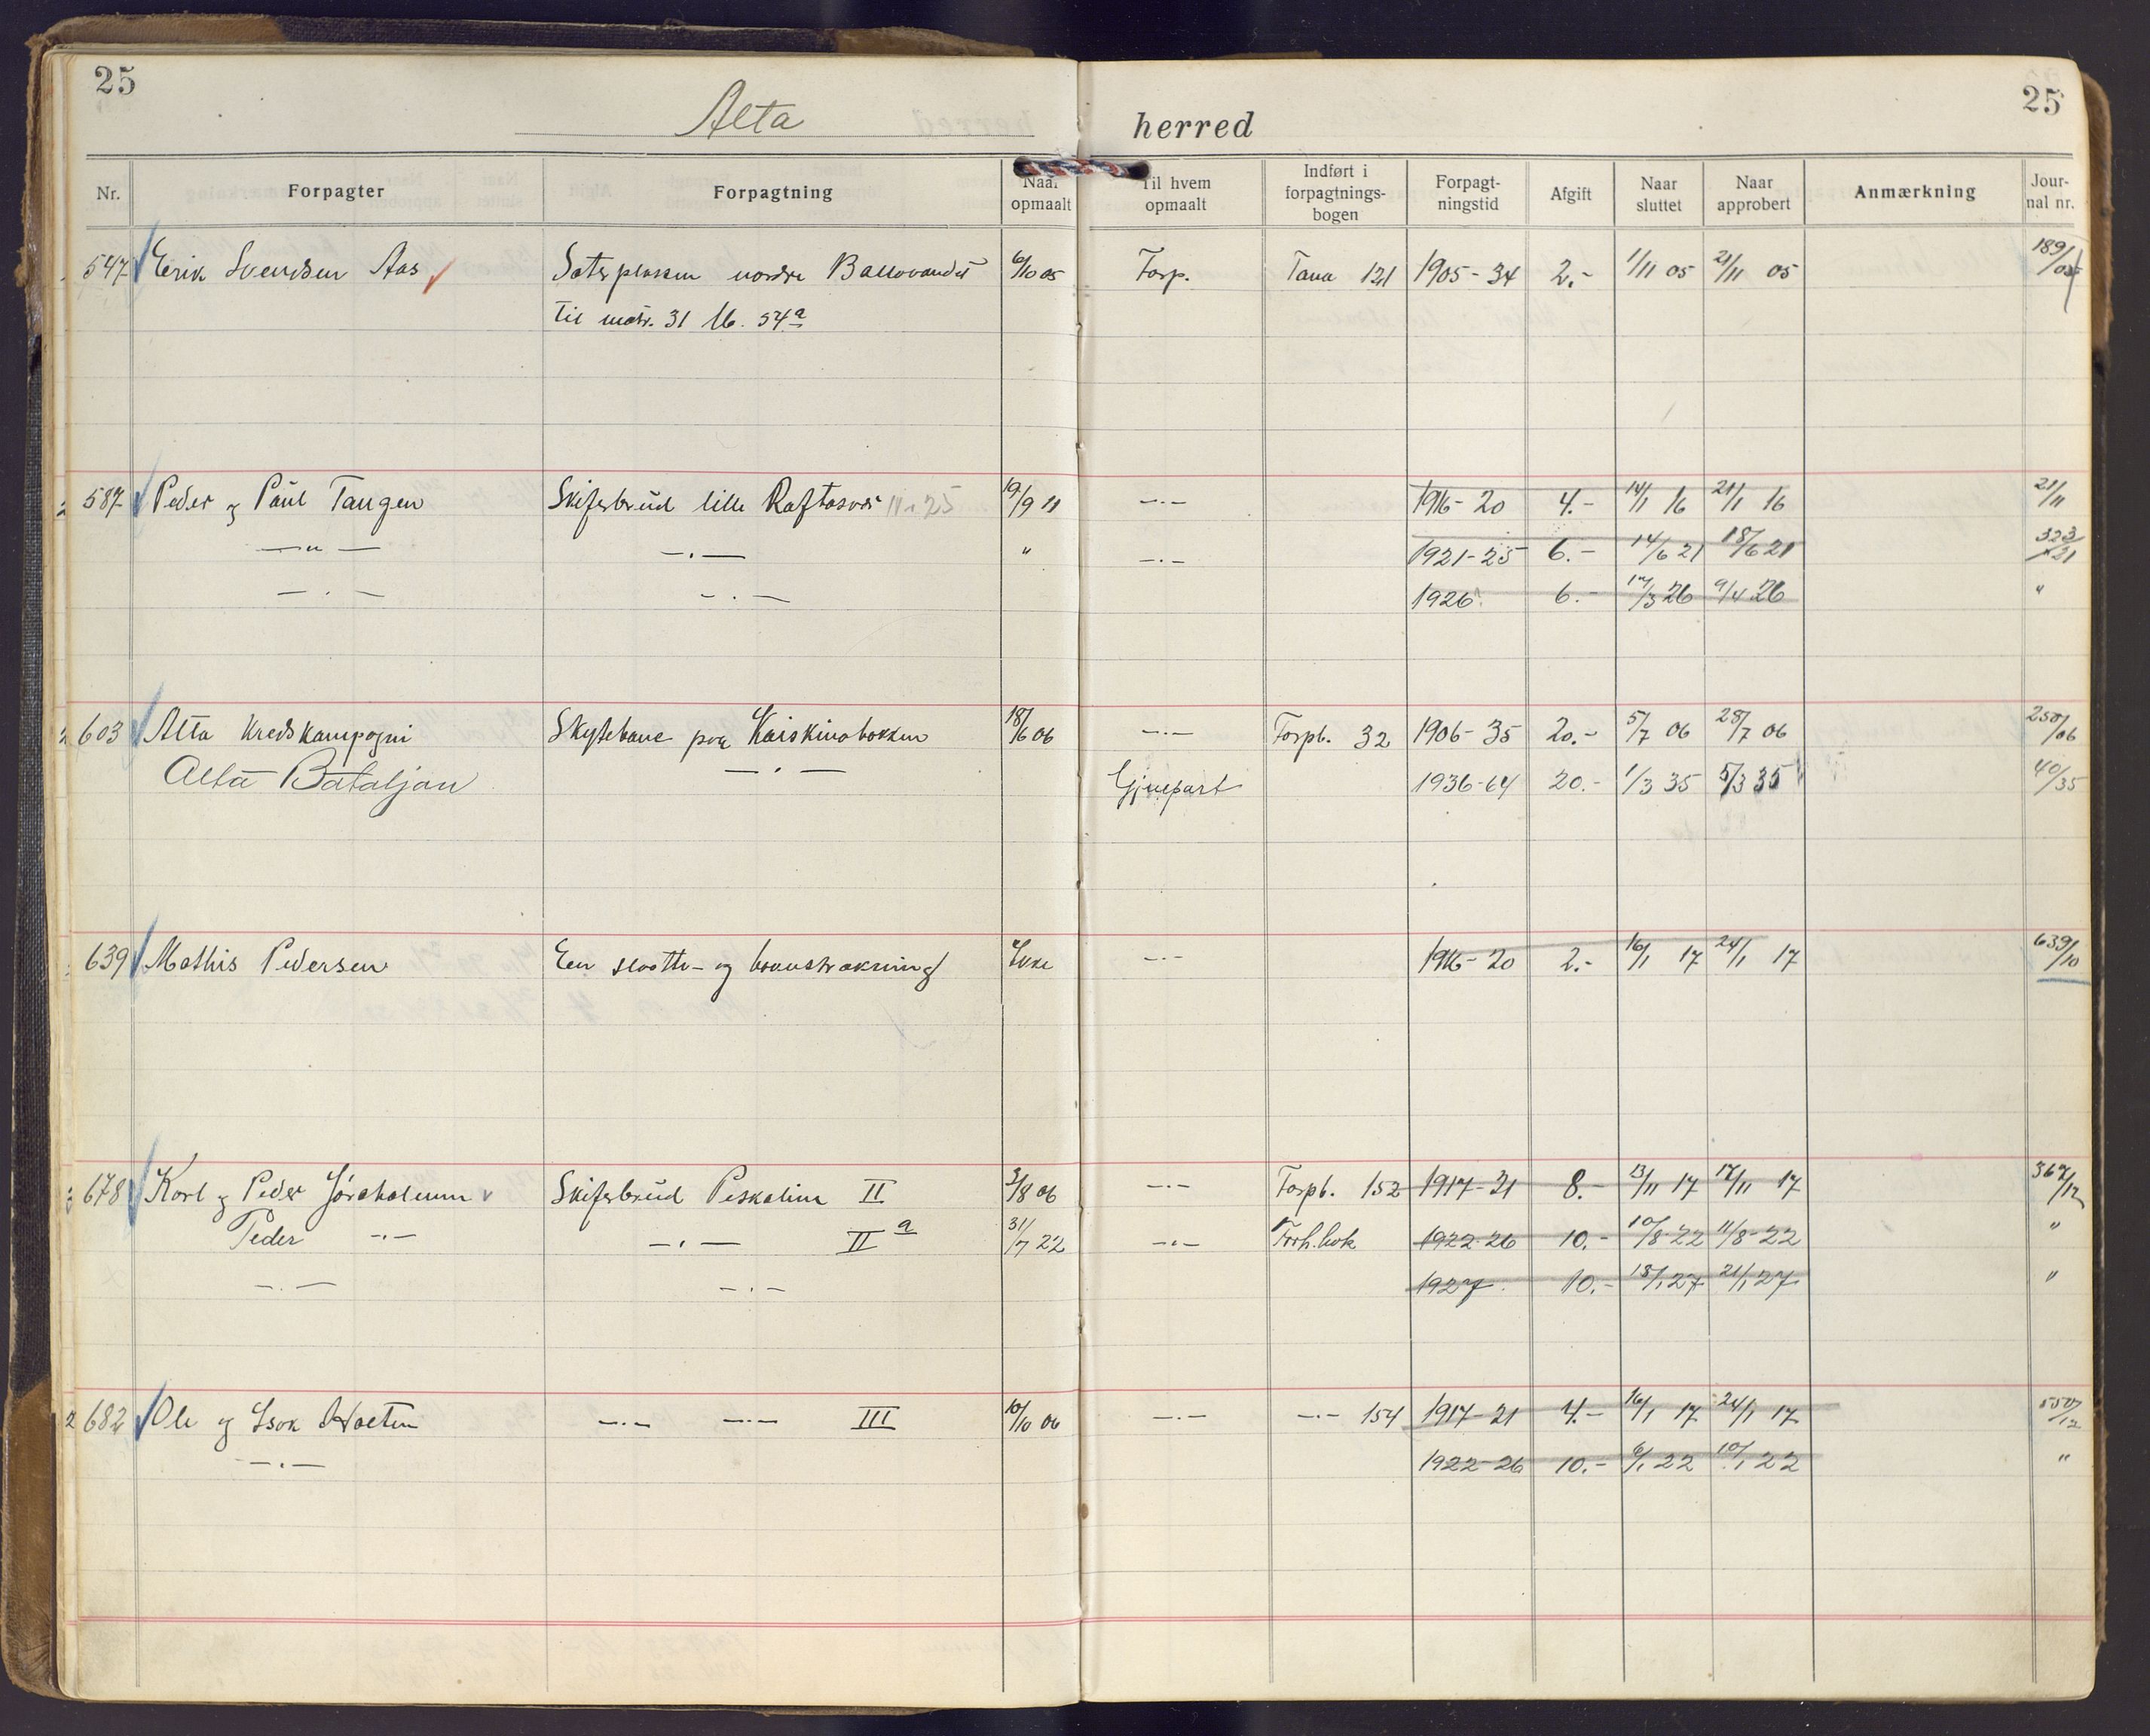 25
25
Alta herred
Nr. Forpagter Forpagtning Naar opmaalt Til hvem opmaalt Indført i forpagtnings-bogen Forpagt-ningstid Afgift Naar sluttet Naar approbert Anmærkning Jour-nal nr.
547 Erik Svendsen Aas Sæterplassen nordre 6/10 05 Forp. Tana 121 1905-34 2.- 1/11 05 21/11 05 189/05
til matr. 31 lb. 54a
587 Peder og Paul Tangen Skiferbrud lille 19/9 11 —·— 1916-20 4.- 14/1 16 21/1 16 21/11
—"— —·— " —·— 1921-25 6.- 14/6 21 18/6 21 323/21
—·— —·— 1926 6.- 17/3 26 9/4 26 "
603 Alta Kredskompagni Skytebane paa 18/6 06 —·— Forpb. 32 1906-35 20.- 5/7 06 28/7 06 250/06
Alta Bataljon —·— Gjenpart 1936-64 20.- 1/3 35 5/3 35 40/35
639 Mathis Pedersen En slaatte- og —·— 1916-20 2.- 16/1 17 24/1 17 639/10
678 Karl og Peder Skiferbrud II 3/8 06 —·— Forpb. 152 1917-21 8.- 13/11 17 17/11 17 367/12
Peder —·— —·— II a 31/7 22 —·— Forh.bok 1922-26 10.- 10/8-22 11/8-22 "
—·— —·— 1927 10.- 18/1 27 21/1 27 "
682 Ole og Isak —·— —·— III 10/10 06 —·— —·— 154 1917-21 4.- 16/1 17 24/1 17 550/12
—·— 1922-26 10.- 6/1 22 10/1 22 "